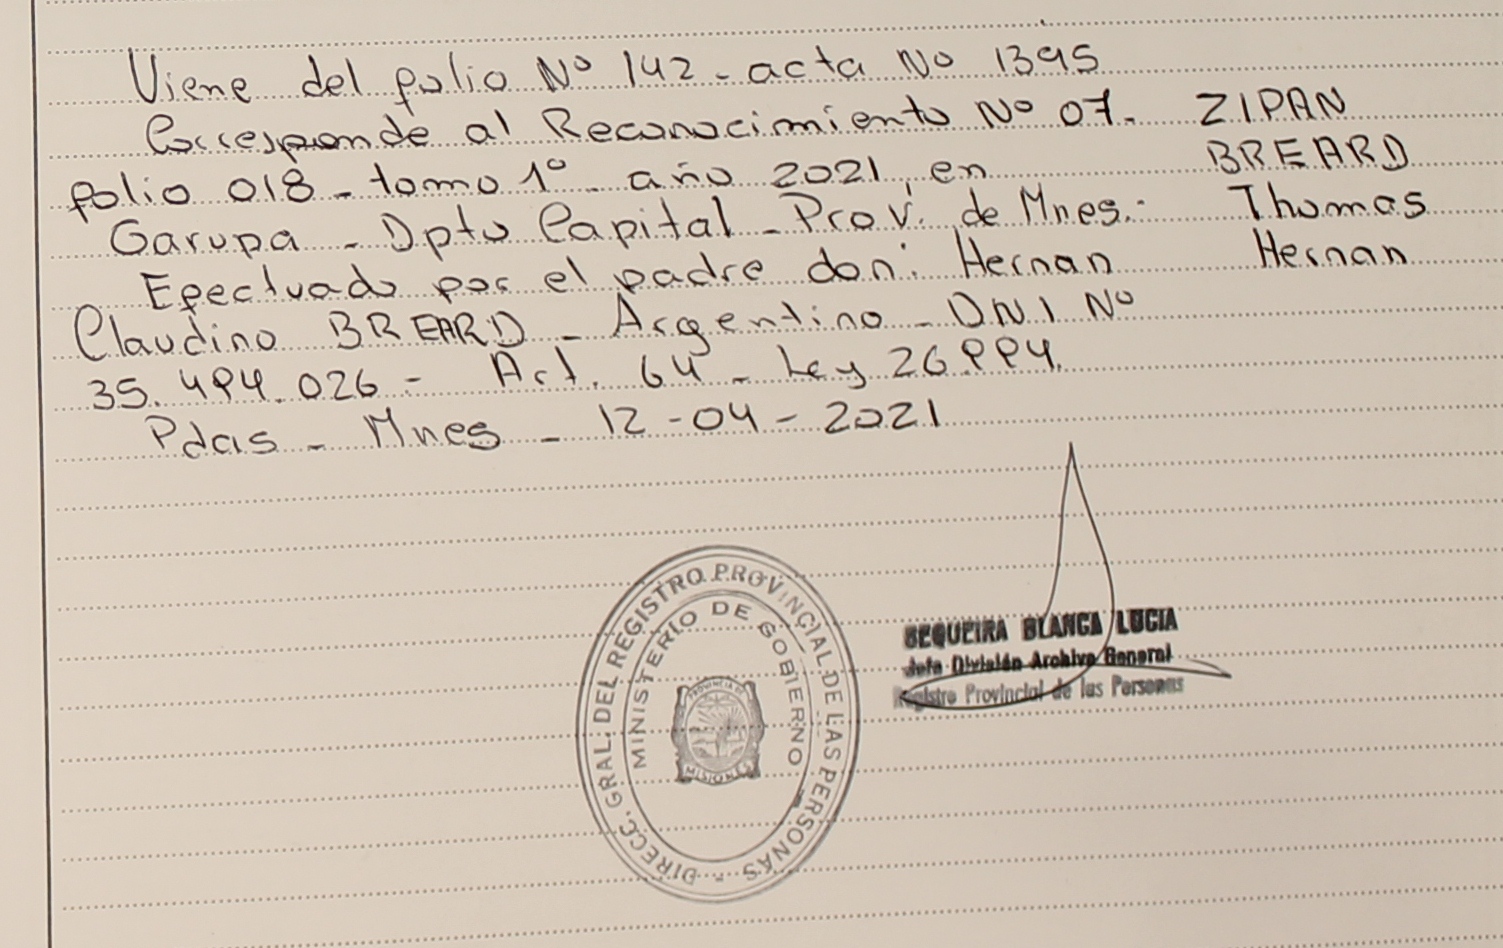 Viene del folio Nº 142 - acta Nº 1395
Corresponde al Reconocimiento Nº 07.
folio 018 - tomo 1º - año 2021, en
Garupa - Dpto Capital - Prov. de Mnes.-
Efectuado por el padre don: Hernan
Claudino BREARD - Argentino - DNI Nº
35.494.026 - Art. 64 - Ley 26994.
Pdas - Mnes - 12-04-2021
ZIPAN
BREARD
Thomas
Hernan
DIRECC. GRAL. DEL REGISTRO PROVINCIAL DE LAS PERSONAS -
MINISTERIO DE GOBIERNO
PROVINCIA DE
MISIONES
SEQUEIRA BLANCA LUCIA
Jefe División Archivo General
Registro Provincial de las Personas